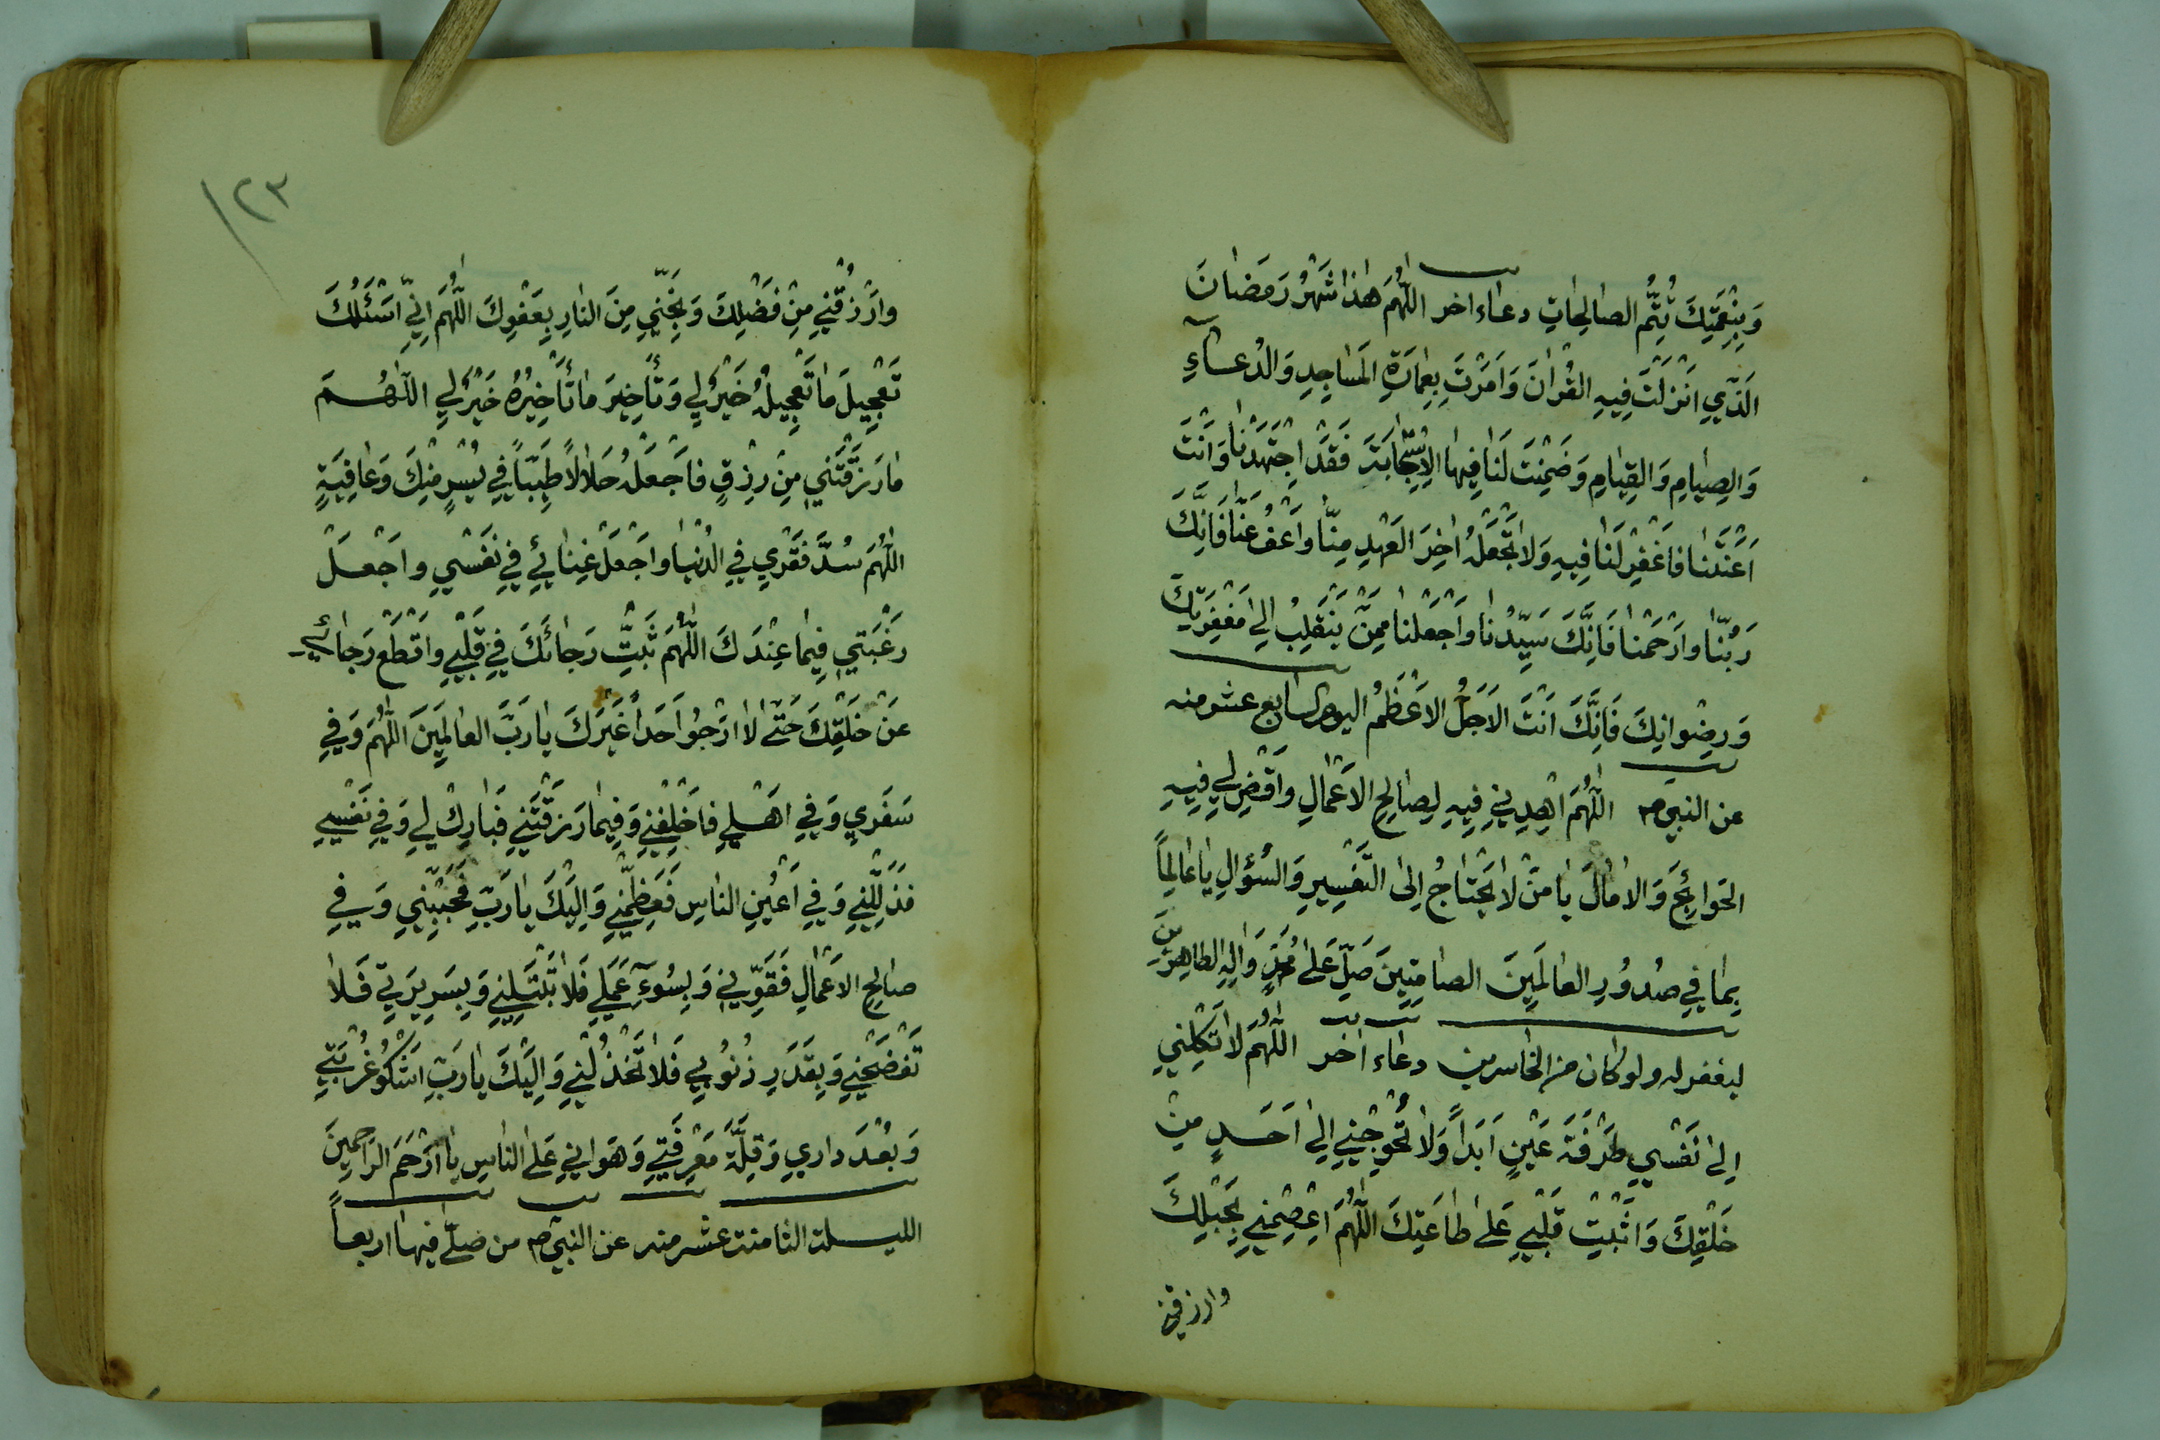 وَبِنِعْمَتِكَ تُتِمُّ الصٰالِحٰاتِ دعاء اخر اللّٰهُمَّ هٰذٰا شَهْرُ رَمَضٰانَ
الَّذِي اَنْزَلْتَ فِيهِ القُرْانَ وَاَمَرْتَ بِعِمٰارَةِ المَسٰاجِدِ وَالدُعٰاۤءِ
وَالصِيٰامِ وَالقِيٰامِ وَضَمِنْتَ لَنٰا فِيهٰا الاِسْتِجٰابَةَ فَقَدْ اجْتَهَدْنٰا وَاَنْتَ
اَعَنْتَنٰا فَاغْفِرْ لَنٰا فِيهِ وَلاٰ تَجْعَلْهُ اٰخِرَ العَهْدِ مِنّٰا وَاعْفُ عَنّٰا فَاِنَّكَ
رَبُّنٰا وَارْحَمْنٰا فَاِنَّكَ سَيِّدُنٰا وَاجْعَلْنٰا مِمَّنْ يَنْقَلِبُ اِلىٰ مَغْفِرَتِكَ
وَرِضْوانِكَ فَاِنَّكَ اَنْتَ الاَجَلُّ الاَعْظَمُ اليوم السابع عشر منه
عن النبي ص اللّٰهُمَّ اهْدِنِي فِيهِ لِصٰالِحِ الاَعْمٰالِ وَاقْضِ لِي فِيهِ
الحَوائِجَ وَالاٰمٰالَ يٰا مَنْ لاٰ يَحْتٰاجُ اِلىَ التَفْسِيرِ وَالسُؤٰالِ يٰا عٰالِماً
بِمٰا فِي صُدُورِ العٰالَمِينَ الصٰامِتِينَ صَلِّ عَلىٰ مُحَمَّدٍ وَاٰلِهِ الطٰاهِرِينَ
ليغفر له ولو كان من الخاسرين دعاء اخر اللّٰهُمَّ لاٰ تَكِلْنِي
اِلىٰ نَفْسِي طَرْفَةَ عَيْنٍ اَبَداً وَلاٰ تُحْوِجْنِي اِلىٰ اَحَدٍ مِنْ
خَلْقِكَ وَاَثْبِتْ قَلْبِي عَلىٰ طٰاعَتِكَ اللّٰهُمَّ اعْصِمْنِي بِحَبْلِكَ
وارزقني
١٢٣
وَارْزُقْنِي مِنْ فَضْلِكَ وَنَجِّنِي مِنَ النٰارِ بِعَفْوِكَ اللّٰهُمَّ اِنِّي اَسْئَلُكَ
تَعْجِيلَ مٰا تَعْجِيلُهُ خَيْرٌ لِي وَتَأْخِيرَ مٰا تَأْخِيرُهُ خَيْرٌ لِي اللّٰهُمَّ
مٰا رَزَقْتَنِي مِنْ رِزْقٍ فَاجْعَلْهُ حَلاٰلاً طَيِّباً فِي يُسْرٍ مِنْكَ وَعٰافِيَةٍ
اللّٰهُمَّ سُدَّ فَقْرِي فِي الدُنْيٰا وَاجْعَلْ غِنٰائِي فِي نَفْسِي وَاجْعَلْ
رَغْبَتِي فِيمٰا عِنْدَكَ اللّٰهُمَّ ثَبِّتْ رَجٰائَكَ فِي قَلْبِي وَاقْطَعْ رَجٰائِي
عَنْ خَلْقِكَ حَتّٰى لاٰ ارْجُوا اَحَداً غَيْرَكَ يٰا رَبَّ العٰالَمِينَ اللّٰهُمَّ وَفِي
سَفَرِي وَفِي اهْلِي فَاخْلِفْنِي وَفِيمٰا رَزَقْتَنِي فَبٰارِكْ لِي وَفِي نَفْسِي
فَذَلِّلْنِي وَفِي اَعْيُنِ النٰاسِ فَعَظِّمْنِي وَاِلَيْكَ يٰا رَبِّ فَحَبِّبْنِي وَفِي
صٰالِحِ الاَعْمٰالِ فَقَوِّنِي وَبِسُوۤءِ عَمَلِي فَلاٰ تَبْتَلِنِي وَبِسَرِيرَتِي فَلاٰ
تَفْضَحْنِي وَبِقَدَرِ ذُنُوبِي فَلاٰ تَخْذُلْنِي وَاِلَيْكَ يٰا رَبِّ اَشْكُو غُرْبَتِي
وَبُعْدَ دارِي وَقِلَّةَ مَعْرِفَتِي وَهَوٰانِي عَلَى النٰاسِ يٰا ارْحَمَ الرٰاحِمِينَ
الليلة الثامنة عشر منه عن النبي ص من صلّى فيها اربعاً